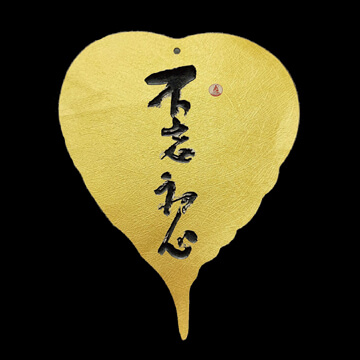 不忘初心